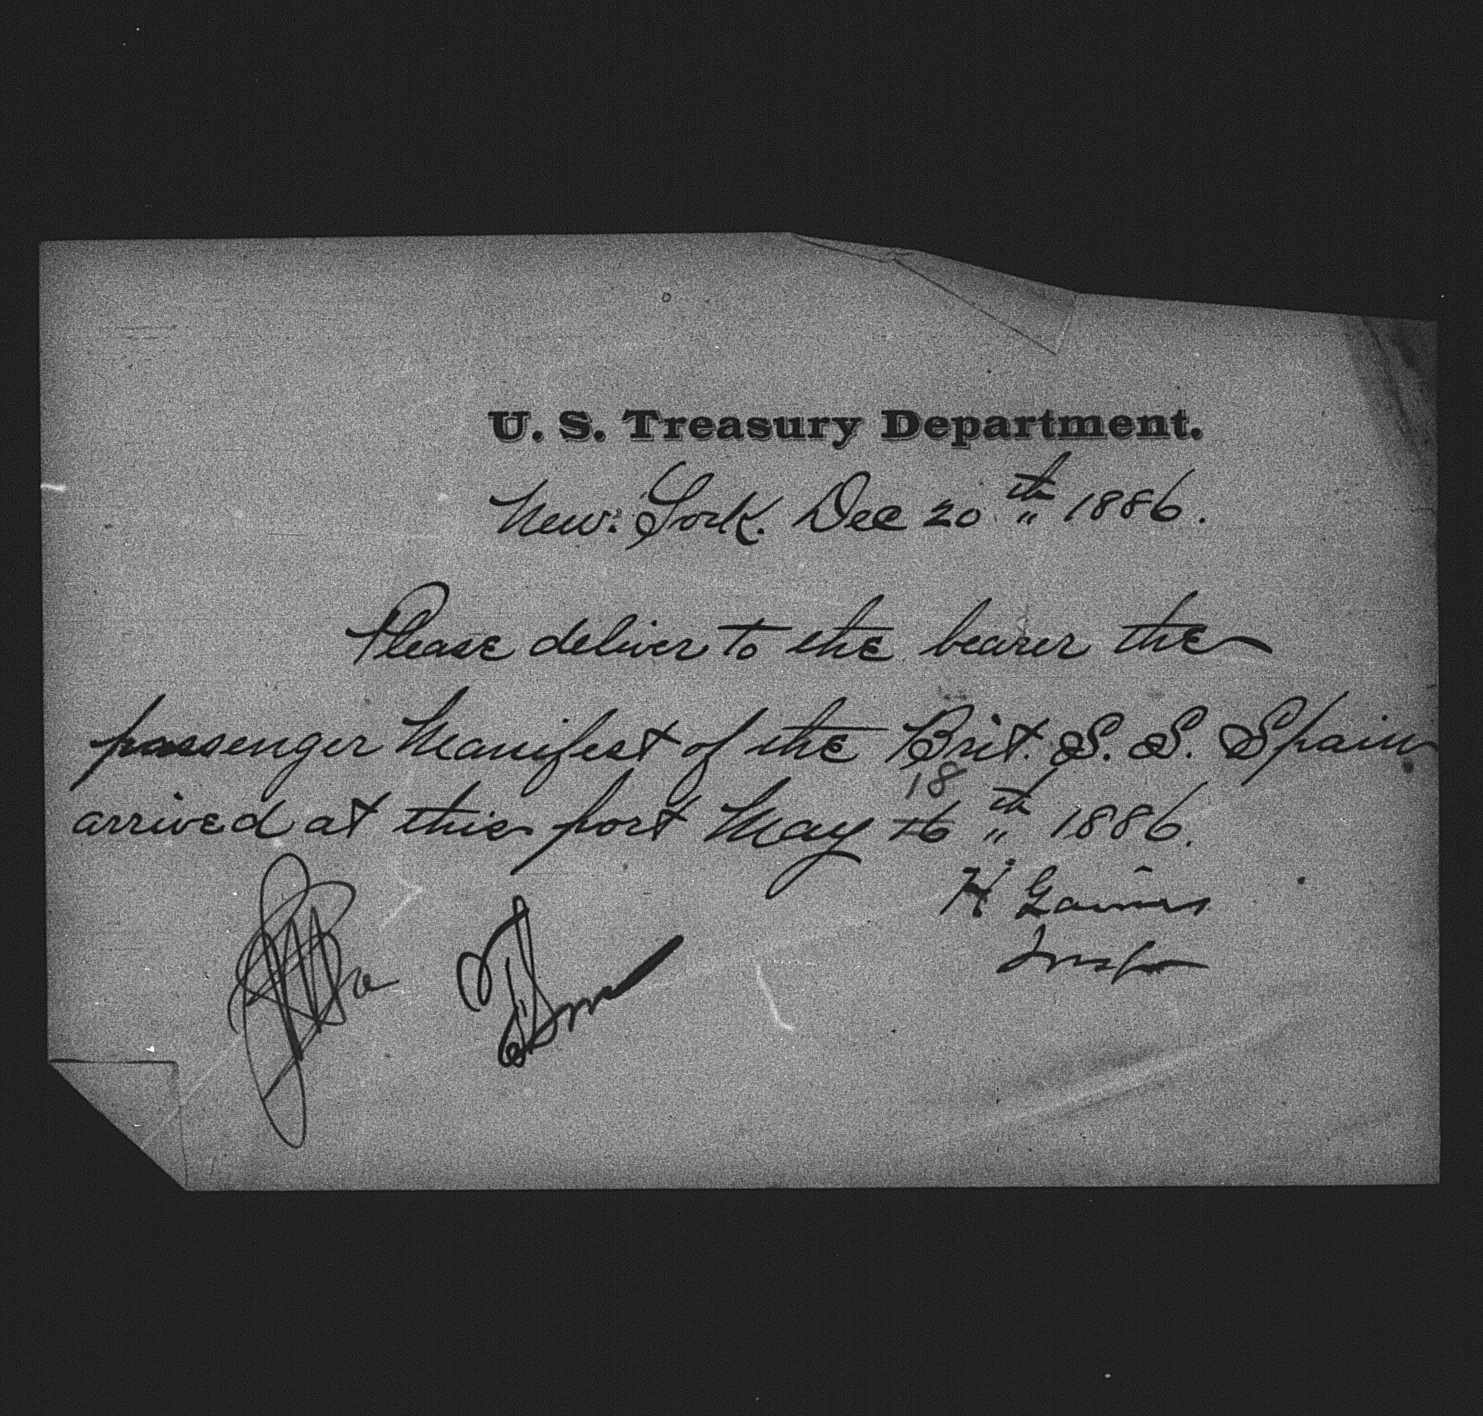 U. S. Treasury Department.
New York. Dec 20th 1886.
Please deliver to the bearer the
passenger Manifest of the Brit. S. S. Spain
18
arrived at this port May 16th 1886.
H Gaines
Inspr